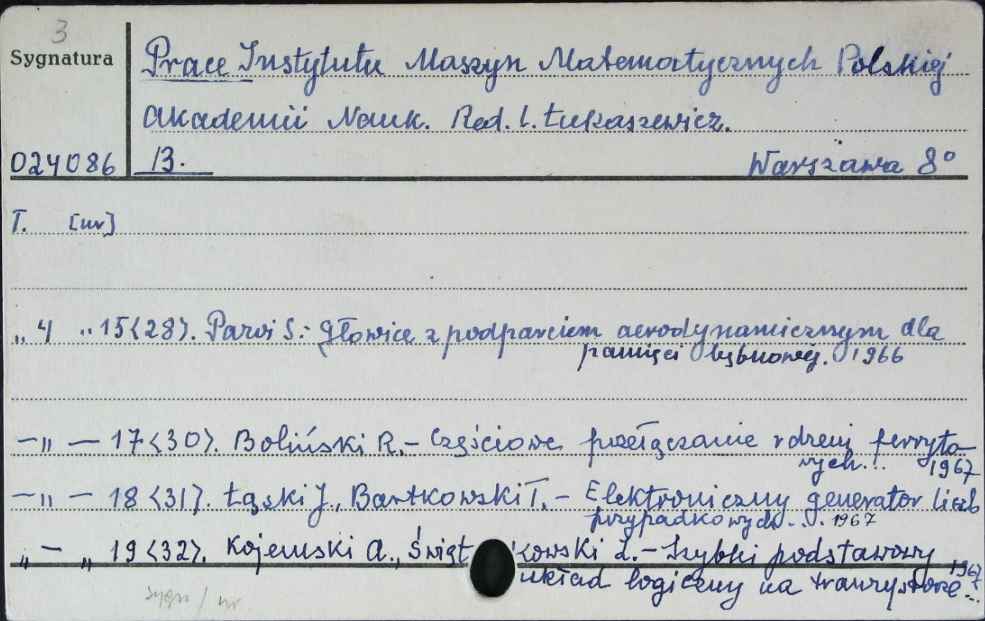 3
Sygnatura
Prace Instytutu Maszyn Matematycznych Polskiej
Akademii Nauk. Red. L. Łukaszewicz.
024086 B. Warszawa 8°
T. [nr]
„ 4 „ 15<28>. Parvi S.: Głowice z podparciem aerodynamicznym dla
pamięci bębnowej. 1966
–„ – 17<30>. Boliński R. – Częściowe przełączanie rdzeni ferryto-
wych... 1967
–„ – 18<31>. Łąski J., Bartkowski T. – Elektroniczny generator liczb
przypadkowych... 1967
„ – „ 19<32>. Kojemski A., Świątkowski Z. – Szybki podstawowy
układ logiczny na tranzystorze... 1967
sygn / nr